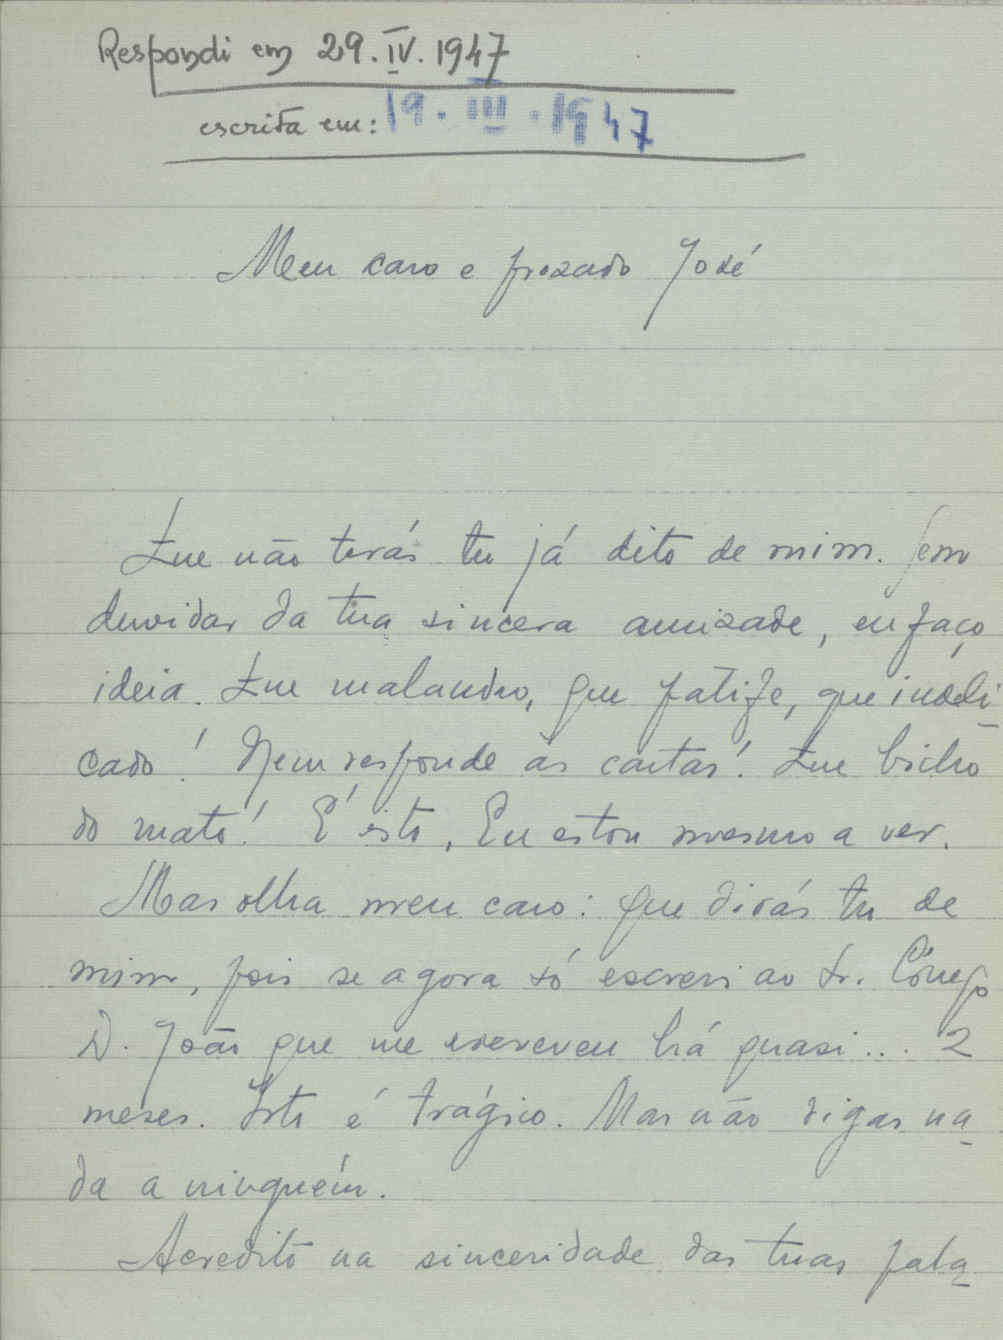 Respondi em 29.IV.1947
escrita em: 19.III.1947
Meu caro e prezado José
Que não terás tu já dito de mim. Sem
duvidar da tua sincera amizade, eu faço
ideia. Que malandro, que patife, que indeli-
cado! Nem responde às cartas! Que bicho
do mato! É isto, Eu estou mesmo a ver.
Mas olha meu caro: que dirás tu de
mim, pois se agora só escrevi ao Sr. Cónego
D. João que me escreveu há quasi... 2
meses. Isto é trágico. Mas não digas na-
da a ninguém.
Acredito na sinceridade das tuas pala-